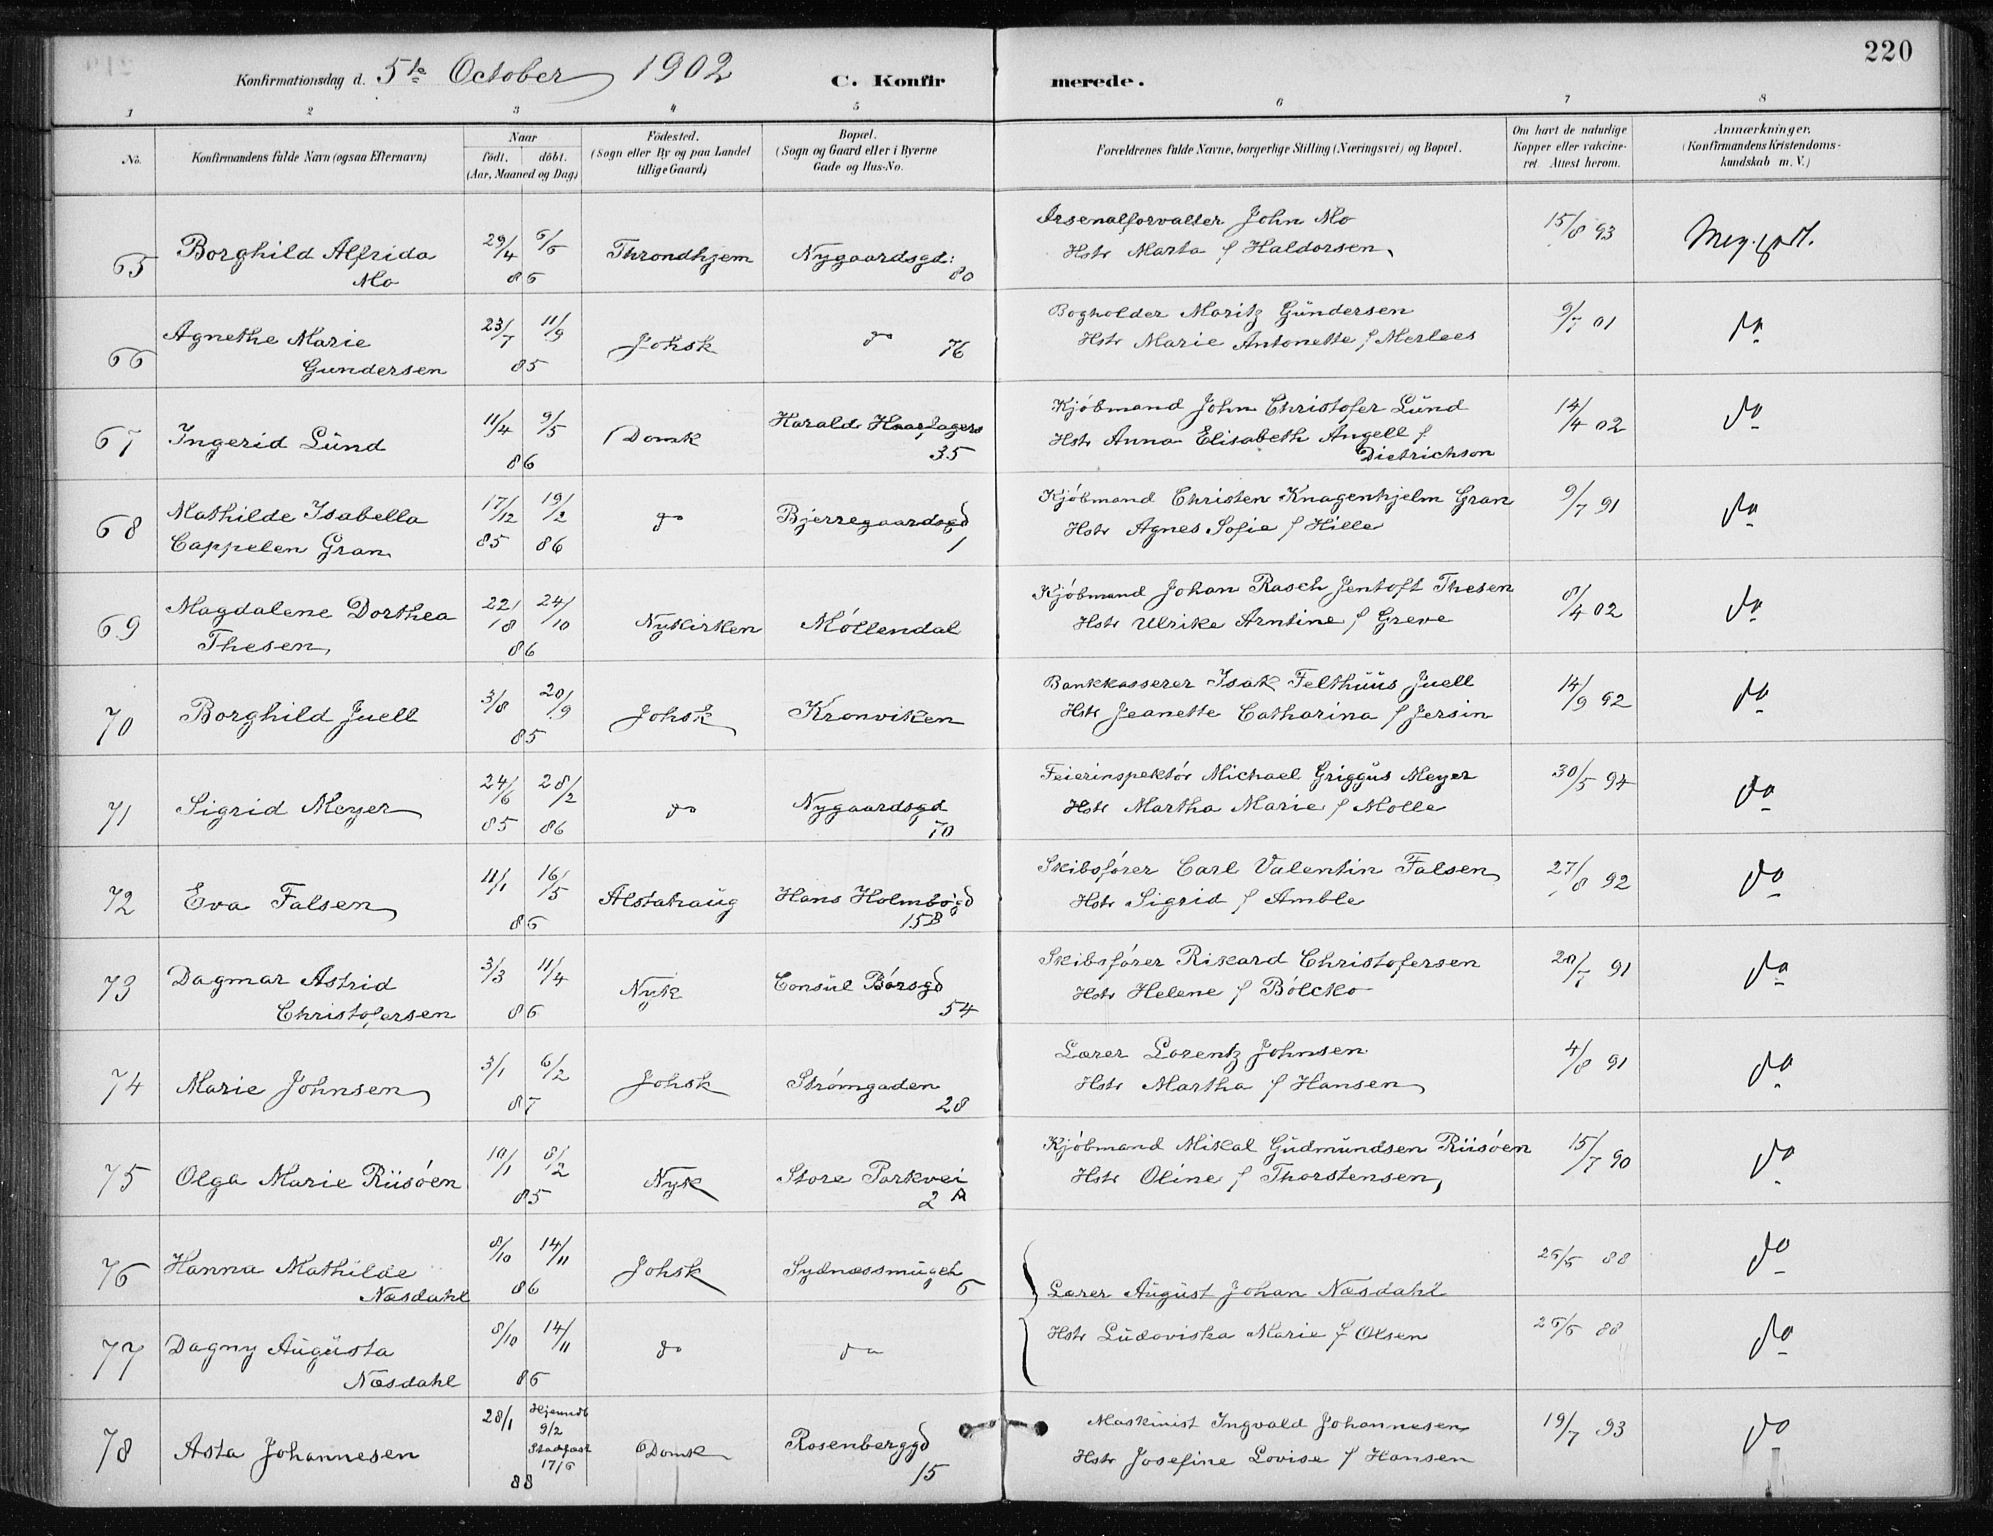 220
Konfirmationsdag d. 5te October 1902
C. Konfir merede.
1 2 3 4 5 6 7 8
No.
Konfirmandens fulde Navn (ogsaa Efternavn)
Naar
födt. döbt.
(Aar, Maaned og Dag)
Födested.
(Sogn eller By og paa Landet
tillige Gaard)
Bopæl.
(Sogn og Gaard eller i Byerne
Gade og Hus-No.
Forældrenes fulde Navne, borgerlige Stilling (Næringsvei) og Bopæl.
Om havt de naturlige
Kopper eller vakcine-
ret. Attest herom.
Anmærkninger.
(Konfirmandens Kristendoms-
kundskab m. V.)
65 Borghild Alfrida Mo 29/4 6/6 86 Throndhjem Nygaardsgd: 80
Arsenalforvalter John Mo
Hstr Marta f Haldorsen 15/8 93 Meg. godt.
66 Agnethe Marie Gundersen 23/7 11/9 85 Johsk do 76
Bogholder Moritz Gundersen
Hstr Marie Antonette f Merlees 9/7 01 do
67 Ingerid Lund 11/4 9/5 86 Domk Harald Haarfagers 35
Kjöbmand John Christofer Lund
Hstr Anna Elisabeth Angell f
Dietrichson 14/4 02 do
68 Mathilde Isabella Cappelen Gran 17/12 85 19/2 86 do Bjerregaardsgd 1
Kjöbmand Christen Knagenhjelm Gran
Hstr Agnes Sofie f Hille 9/7 91 do
69 Magdalene Dorthea Thesen 22/8 24/10 86 Nykirken Möllendal
Kjöbmand Johan Rasch Jentoft Thesen
Hstr Ulrike Arntine f Greve 8/4 02 do
70 Borghild Juell 3/8 20/9 85 Johsk Kronviken
Bankkasserer Isak Felthuus Juell
Hstr Jeanette Catharina f Jersin 14/9 92 do
71 Sigrid Meyer 24/6 85 28/2 86 do Nygaardsgd 70
Feierinspektör Michael Griggus Meyer
Hstr Martha Marie f Molle 30/5 94 do
72 Eva Falsen 11/1 16/5 86 Alstahaug Hans Holmbögd 15B
Skibsförer Carl Valentin Falsen
Hstr Sigrid f Amble 27/8 92 do
73 Dagmar Astrid Christofersen 3/3 11/4 86 Nyk Consul Börsgd 54
Skibsförer Rikard Christofersen
Hstr Helene f Bölcko 20/7 91 do
74 Marie Johnsen 3/1 6/2 87 Johsk Strömgaden 28
Lærer Lorentz Johnsen
Hstr Martha f Hansen 4/8 91 do
75 Olga Marie Riisöen 10/1 8/2 85 Nyk Store Parkvei 2 A
Kjöbmand Mikal Gudmundsen Riisöen
Hstr Oline f Thorstensen 15/7 90 do
76 Hanna Mathilde Næsdahl 8/10 14/11 86 Johsk Sydnæssmuget 6
Lærer August Johan Næsdahl 26/5 88 do
77 Dagny Augusta Næsdahl 8/10 14/11 86 do do
Hstr Ludoviska Marie f Olsen 26/5 88 do
78 Asta Johannesen 28/1 Hjemdb 9/2 Stadfæst 17/6 88 Domk Rosenberggd 15
Maskinist Ingvald Johannesen
Hstr Josefine Lovise f Hansen 19/7 93 do